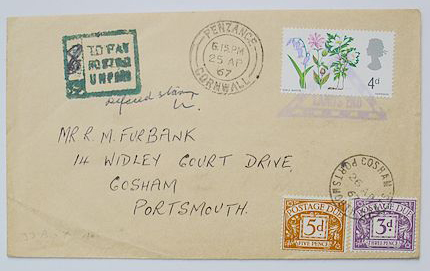 TO PAY
POSTED
UNPAID
PENZANCE
6.15PM
25 AP
67
CORNWALL
4d
Defaced stamp
MR. R. M. FURBANK
14 WIDLEY COURT DRIVE,
COSHAM
PORTSMOUTH.
COSHAM
PORTSMOUTH
26
POSTAGE DUE
5d
FIVE PENCE
POSTAGE DUE
3d
THREE PENCE